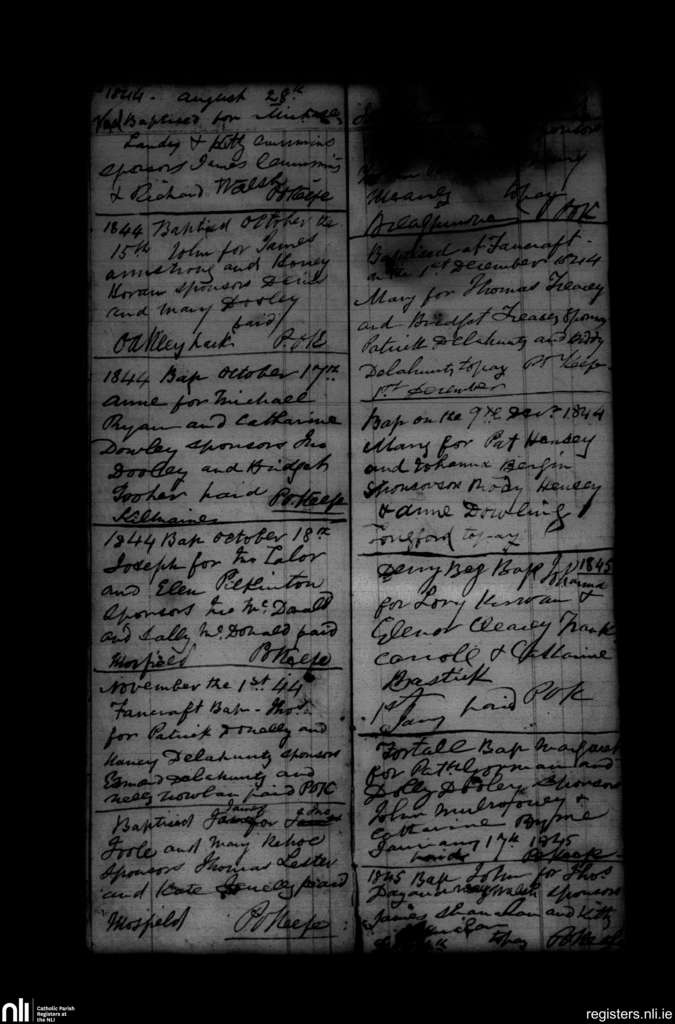 1844. August 28th
Baptised for Michael
Landy & Kitty Cummins
sponsors James Cummins
& Richard Walsh POKeefe
1844 Baptised October the
15th John for James
Armstrong and Honey
Horan sponsors Denis
and Mary Dooley
paid
P.OK
1844 Bap October 17th
Anne for Michael
Ryan and Catharine
Dowley sponsors Jno
Dooley and Bridget
paid POKeefe
1844 Bap October 18th
Joseph for Jno Lalor
and Elen Pilkinton
sponsors Jno McDonald
and Sally McDonald paid
Mosfield POKeefe
November the 1st 44
Fancroft Bap. Thos
for Patrick Donelly and
Nancy Delahunty sponsors
Edmond Delahunty and
Nelly Nowlan paid POK
Baptised James for
Toole and Mary Kehoe
sponsors Thomas Lester
and Kate Donelly paid
Mosfield POKeefe
Meaney to pay
POK
Baptised at Fancroft
on the 1st December 1844
Mary for Thomas Treacy
and Bridget Treacy Sponsors
Patrick Delahunty and Biddy
Delahunty to pay POKeefe
1st December
Bap on the 9th Decr 1844
Mary for Pat Hensey
and Johanna Bergin
Sponsors Mody Hensey
& Anne Dowling
Longford to pay
Derry Beg Bap Johanna 1845
for Lory Kirwan &
Elenor Cleary Frank
Carroll & Catharine
Bastick
1st Jany paid POK
Fortall Bap Margaret
for Patk Gorman and
Dolly Dooley Sponsors
John Mulrooney &
Catharine Byrne
January 17th 1845
paid POKeefe
1845 Bap John for Thos
sponsors
James Shanahan and Kitty
to pay POKeefe
nli
Catholic Parish
Registers at
the NLI
registers.nli.ie